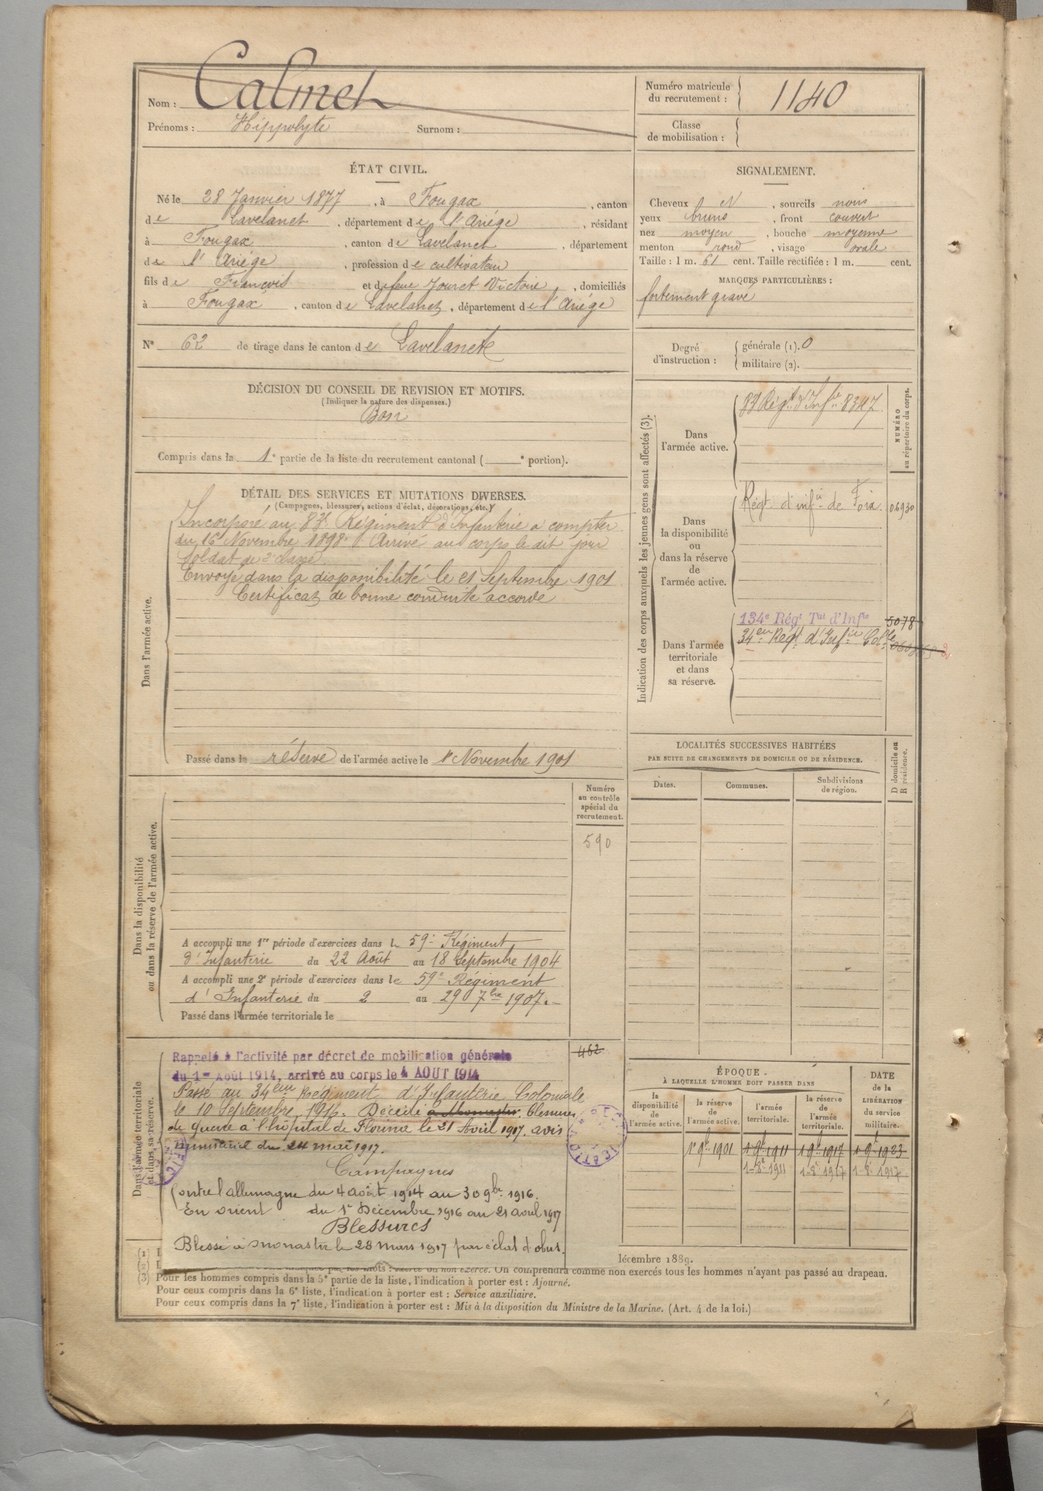 Nom : Calmet
Numéro matricule du recrutement : 1140
Prénoms : Hippolyte Surnom :
Classe de mobilisation :
ÉTAT CIVIL.
Né le 28 Janvier 1877, à Fougax, canton
de Lavelanet, département de l'Ariége, résidant
à Fougax, canton de Lavelanet, département
de l'Ariége, profession de cultivateur
fils de François et de feue Jouret Victoire, domiciliés
à Fougax, canton de Lavelanet, département de l'Ariége
N° 62 de tirage dans le canton de Lavelanet
SIGNALEMENT.
Cheveux N, sourcils noirs
yeux bruns, front couvert
nez moyen, bouche moyenne
menton rond, visage ovale
Taille : 1 m. 61 cent. Taille rectifiée : 1 m. cent.
MARQUES PARTICULIÈRES :
fortement gravé
Degré d'instruction : générale (1). 0
militaire (2).
DÉCISION DU CONSEIL DE REVISION ET MOTIFS.
(Indiquer la nature des dispenses.)
Bon
Compris dans la 1e partie de la liste du recrutement cantonal ( e portion).
DÉTAIL DES SERVICES ET MUTATIONS DIVERSES.
(Campagnes, blessures, actions d'éclat, décorations, etc.)
Dans l'armée active.
Incorporé au 83e Régiment d'Infanterie à compter
du 16 Novembre 1898. Arrivé au corps le dit jour
Soldat de 2e classe
Envoyé dans la disponibilité le 21 Septembre 1901
Certificat de bonne conduite accordé
Passé dans la réserve de l'armée active le 1er Novembre 1901
Indication des corps auxquels les jeunes gens sont affectés (3).
NUMÉRO au répertoire du corps.
Dans l'armée active.
83 Régt d'Infie 8347
Dans la disponibilité ou dans la réserve de l'armée active.
Régt d'infie de Foix 06930
Dans l'armée territoriale et dans sa réserve.
134e Régt Tal d'Infie 5078
34ème Régt d'Infie Colle
LOCALITÉS SUCCESSIVES HABITÉES
PAR SUITE DE CHANGEMENTS DE DOMICILE OU DE RÉSIDENCE.
Dates. Communes. Subdivisions de région. D domicile ou R résidence.
Dans la disponibilité ou dans la réserve de l'armée active.
Numéro au contrôle spécial du recrutement.
590
A accompli une 1re période d'exercices dans le 59e Régiment
d'Infanterie du 22 Août au 18 Septembre 1904
A accompli une 2e période d'exercices dans le 59e Régiment
d'Infanterie du 2 au 29 7bre 1907.
Passé dans l'armée territoriale le
Dans l'armée territoriale et dans sa réserve.
462
Rappelé à l'activité par décret de mobilisation générale
du 1er Août 1914, arrivé au corps le 4 AOUT 1914
Passé au 34ème Régiment d'Infanterie Coloniale
le 10 Septembre 1916. Décédé à Monastir blessures
de guerre à l'hôpital de Florina le 21 Avril 1917. avis
ministériel du 24 mai 1917.
Campagnes
Contre l'allemagne du 4 août 1914 au 30 9bre 1916.
En orient du 1er Décembre 1916 au 21 avril 1917
Blessures
Blessé à Monastir le 28 mars 1917 par éclat d'obus.
ÉPOQUE
A LAQUELLE L'HOMME DOIT PASSER DANS
la disponibilité de l'armée active.
la réserve de l'armée active.
l'armée territoriale.
la réserve de l'armée territoriale.
DATE de la LIBÉRATION du service militaire.
1er 9bre 1901 1 9bre 1911 1 9bre 1917 1 9bre 1923
1 8bre 1911 1 8bre 1917
décembre 1889.
On comprendra comme non exercés tous les hommes n'ayant pas passé au drapeau.
Pour les hommes compris dans la 5e partie de la liste, l'indication à porter est : Ajourné.
Pour ceux compris dans la 6e liste, l'indication à porter est : Service auxiliaire.
Pour ceux compris dans la 7e liste, l'indication à porter est : Mis à la disposition du Ministre de la Marine. (Art. 4 de la loi.)